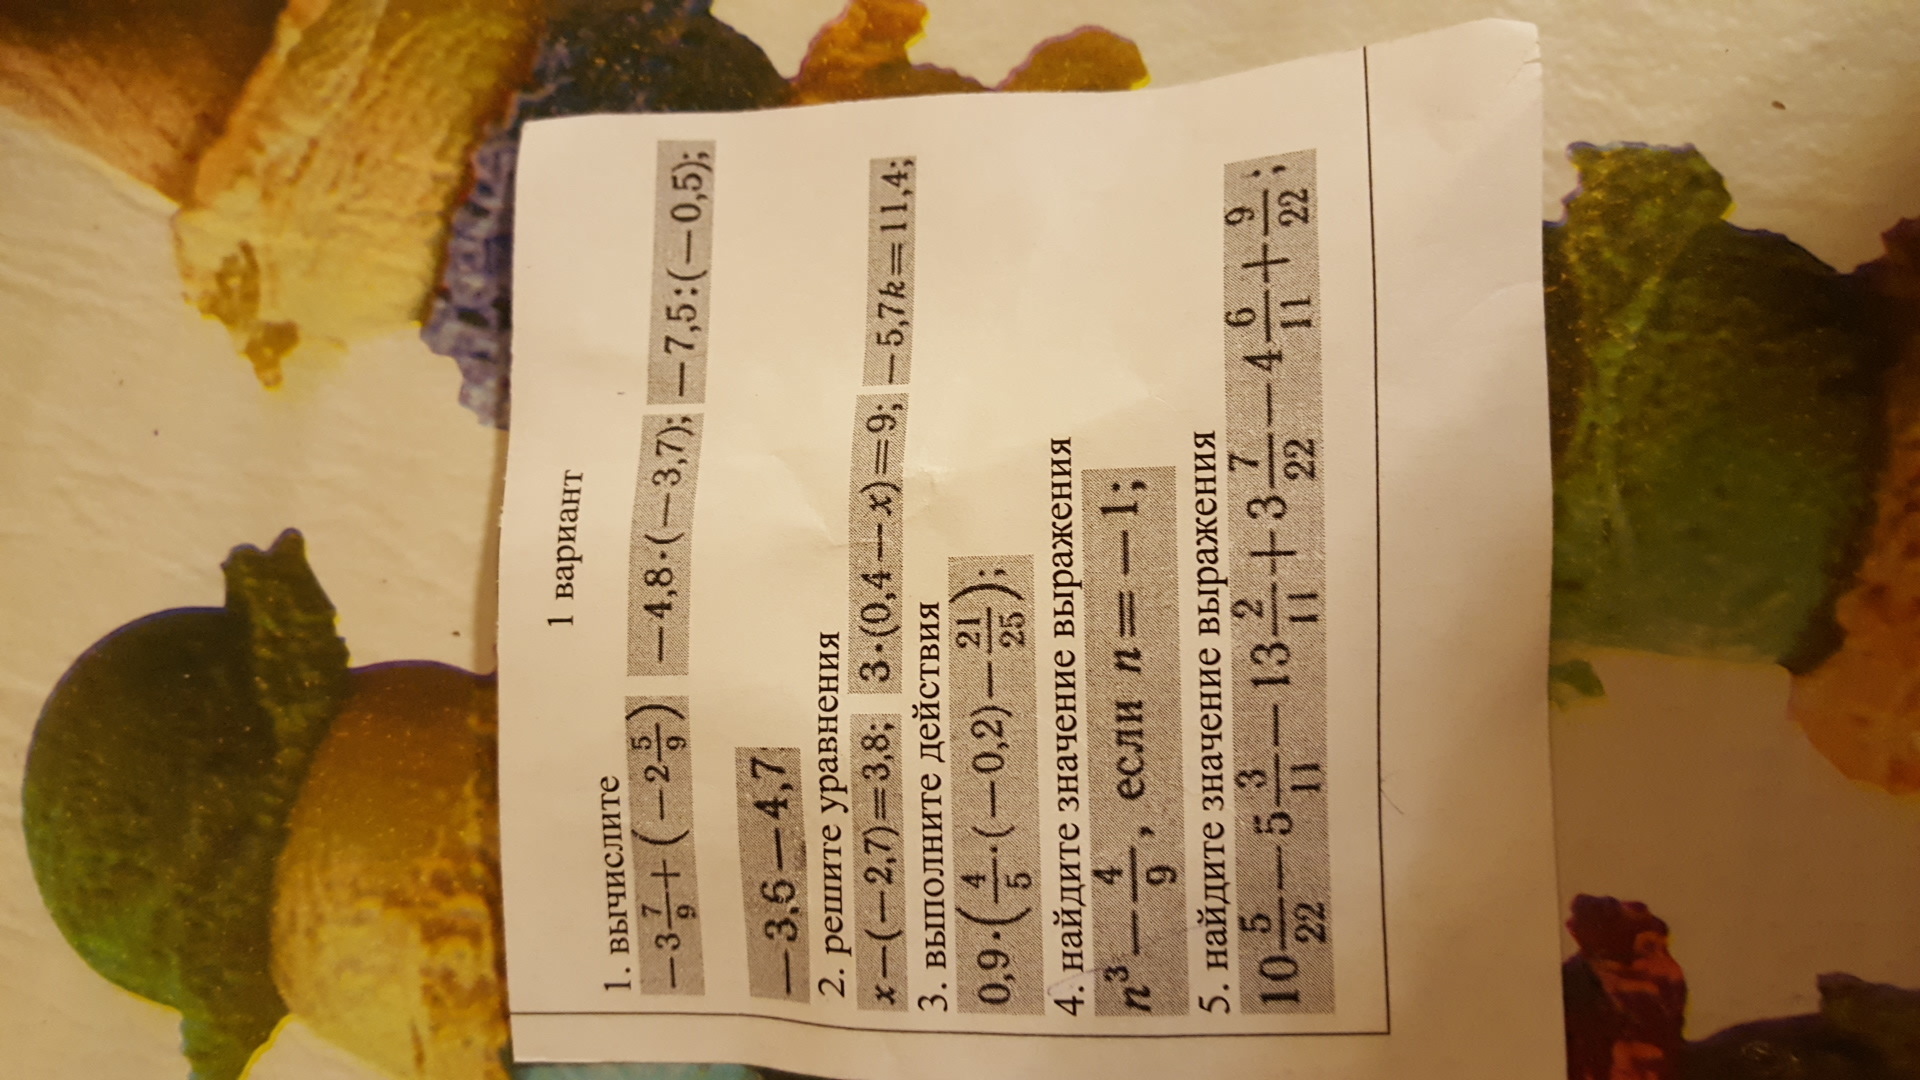 1 вариант
1. вычислите
−3 7/9 + (−2 5/9) −4,8·(−3,7); −7,5:(−0,5);
−3,6−4,7
2. решите уравнения
x−(−2,7)=3,8; 3·(0,4−x)=9; −5,7k=11,4;
3. выполните действия
0,9·(4/5·(−0,2)−21/25);
4. найдите значение выражения
n³−4/9, если n=−1;
5. найдите значение выражения
10 5/22−5 3/11−13 2/11+3 7/22−4 6/11+9/22;